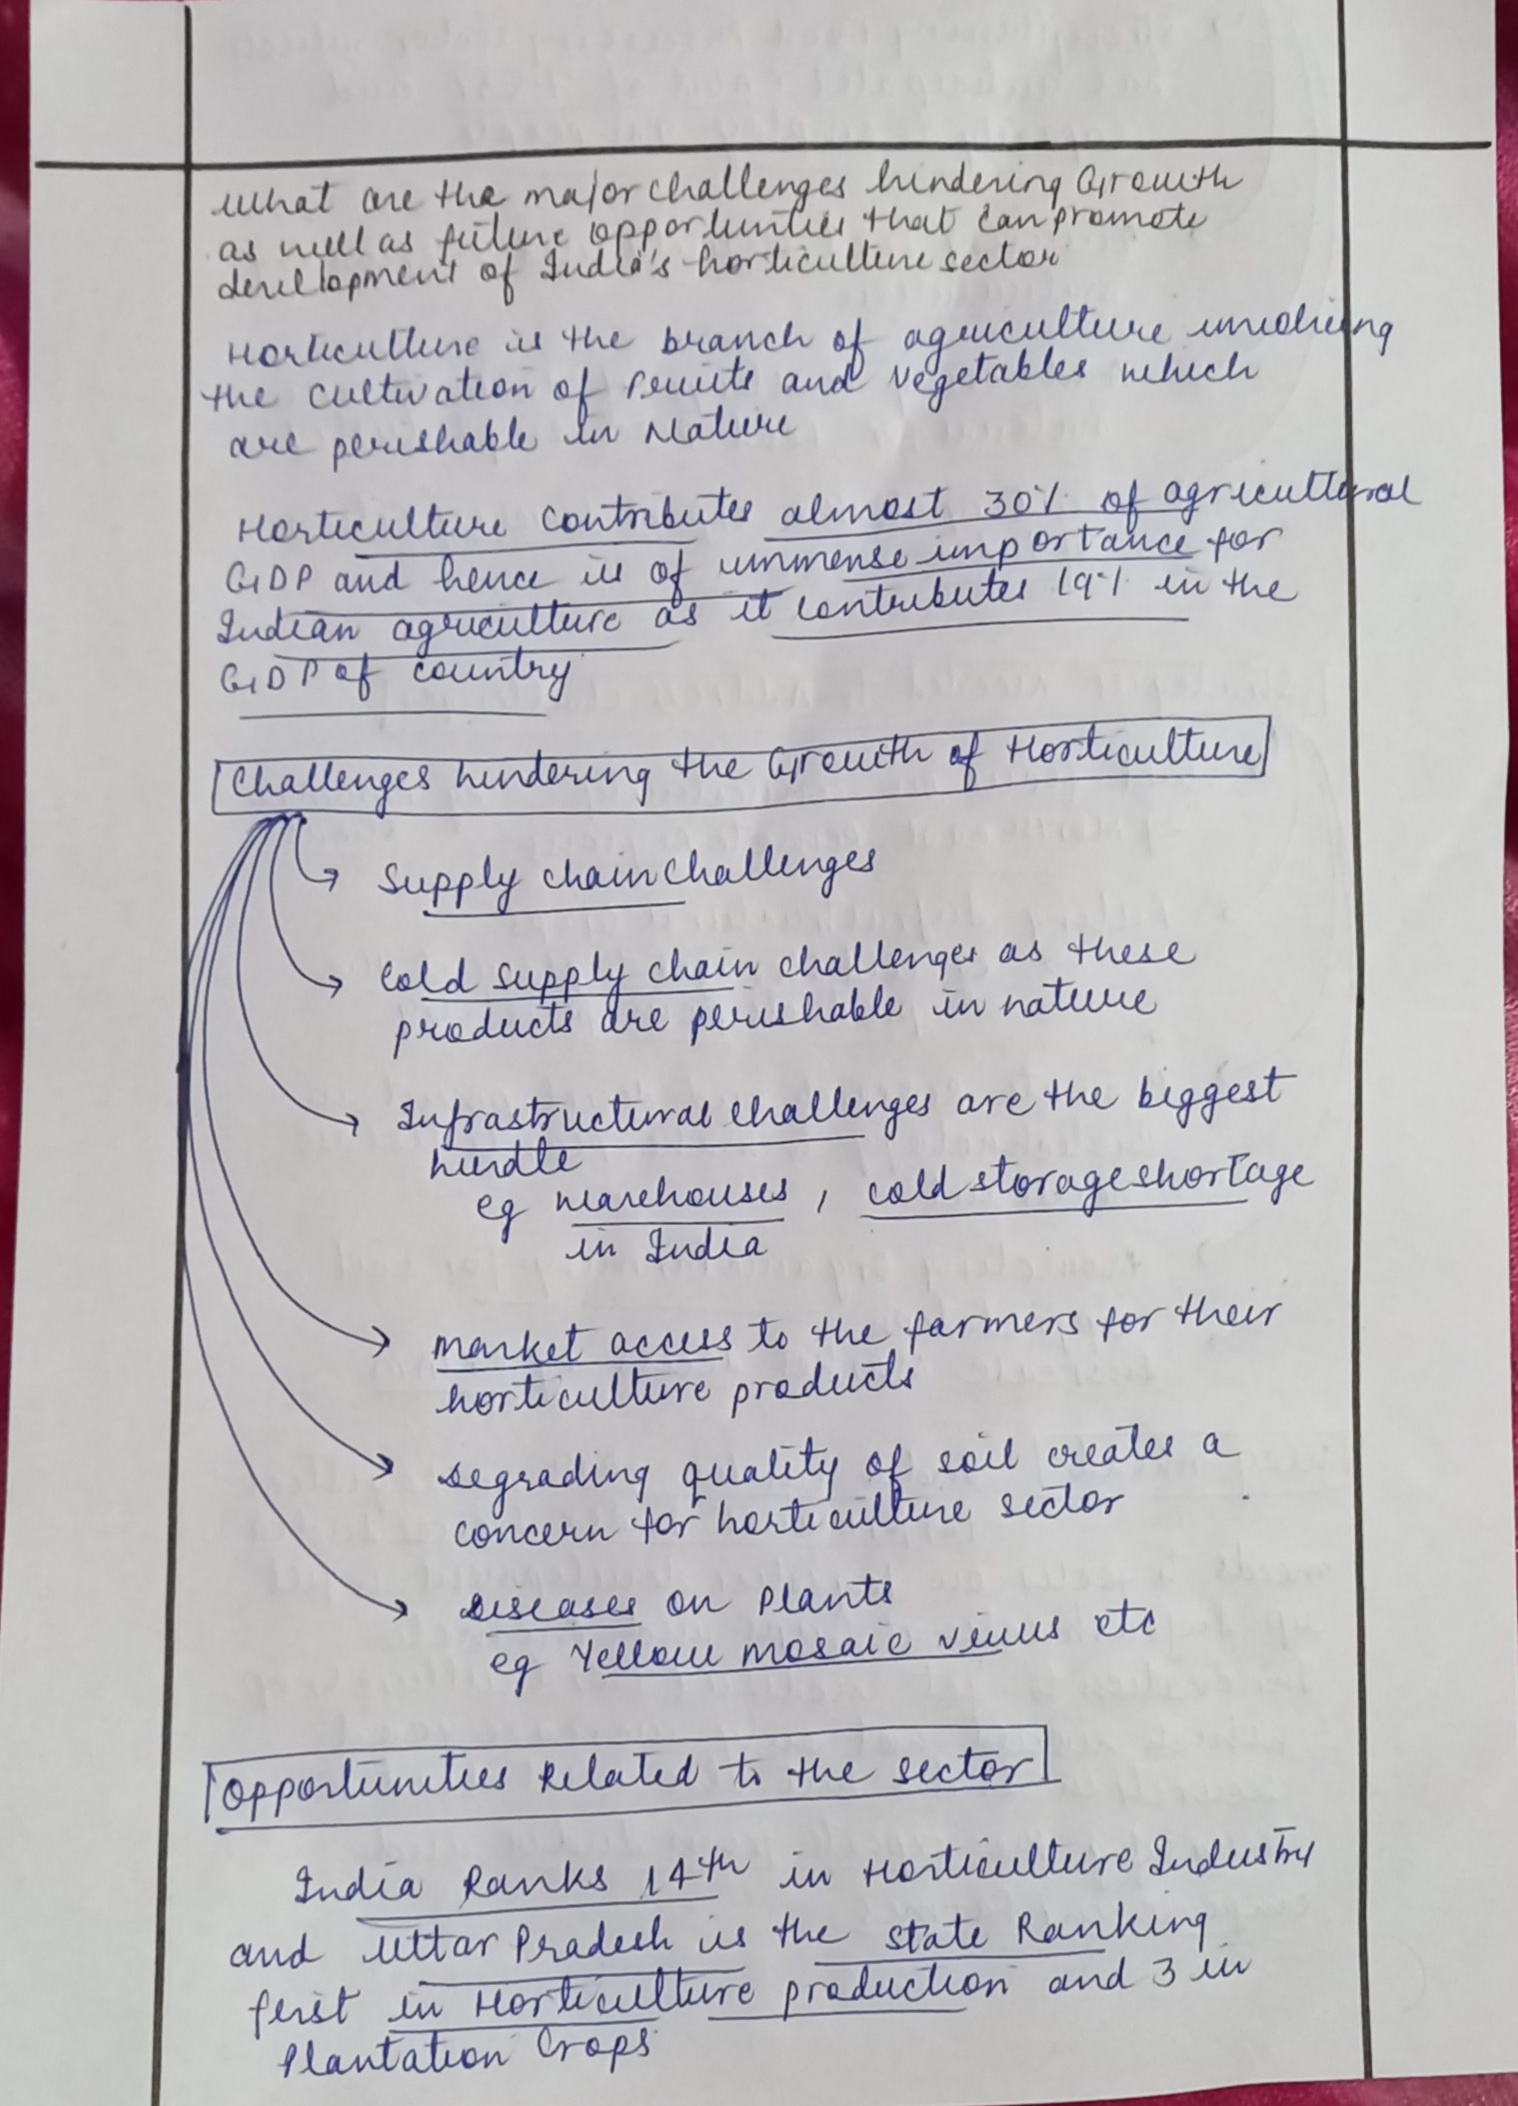 What are the major challenges hindering Growth
as well as future opportunities that can promote
development of India's horticulture sector
Horticulture is the branch of agriculture involving
the cultivation of Fruits and Vegetables which
are perishable in Nature
Horticulture contributes almost 30% of agricultural
GDP and hence is of immense importance for
Indian agriculture as it contributes 19% in the
GDP of country
Challenges hindering the Growth of Horticulture
Supply chain challenges
Cold supply chain challenges as these
products are perishable in nature
Infrastructural challenges are the biggest
hurdle
eg warehouses, cold storage shortage
in India
Market access to the farmers for their
horticulture products
Degrading quality of soil creates a
concern for horticulture sector
Diseases on Plants
eg Yellow mosaic virus etc
Opportunities Related to the sector
India Ranks 14th in Horticulture Industry
and Uttar Pradesh is the state Ranking
first in Horticulture production and 3 in
Plantation Crops